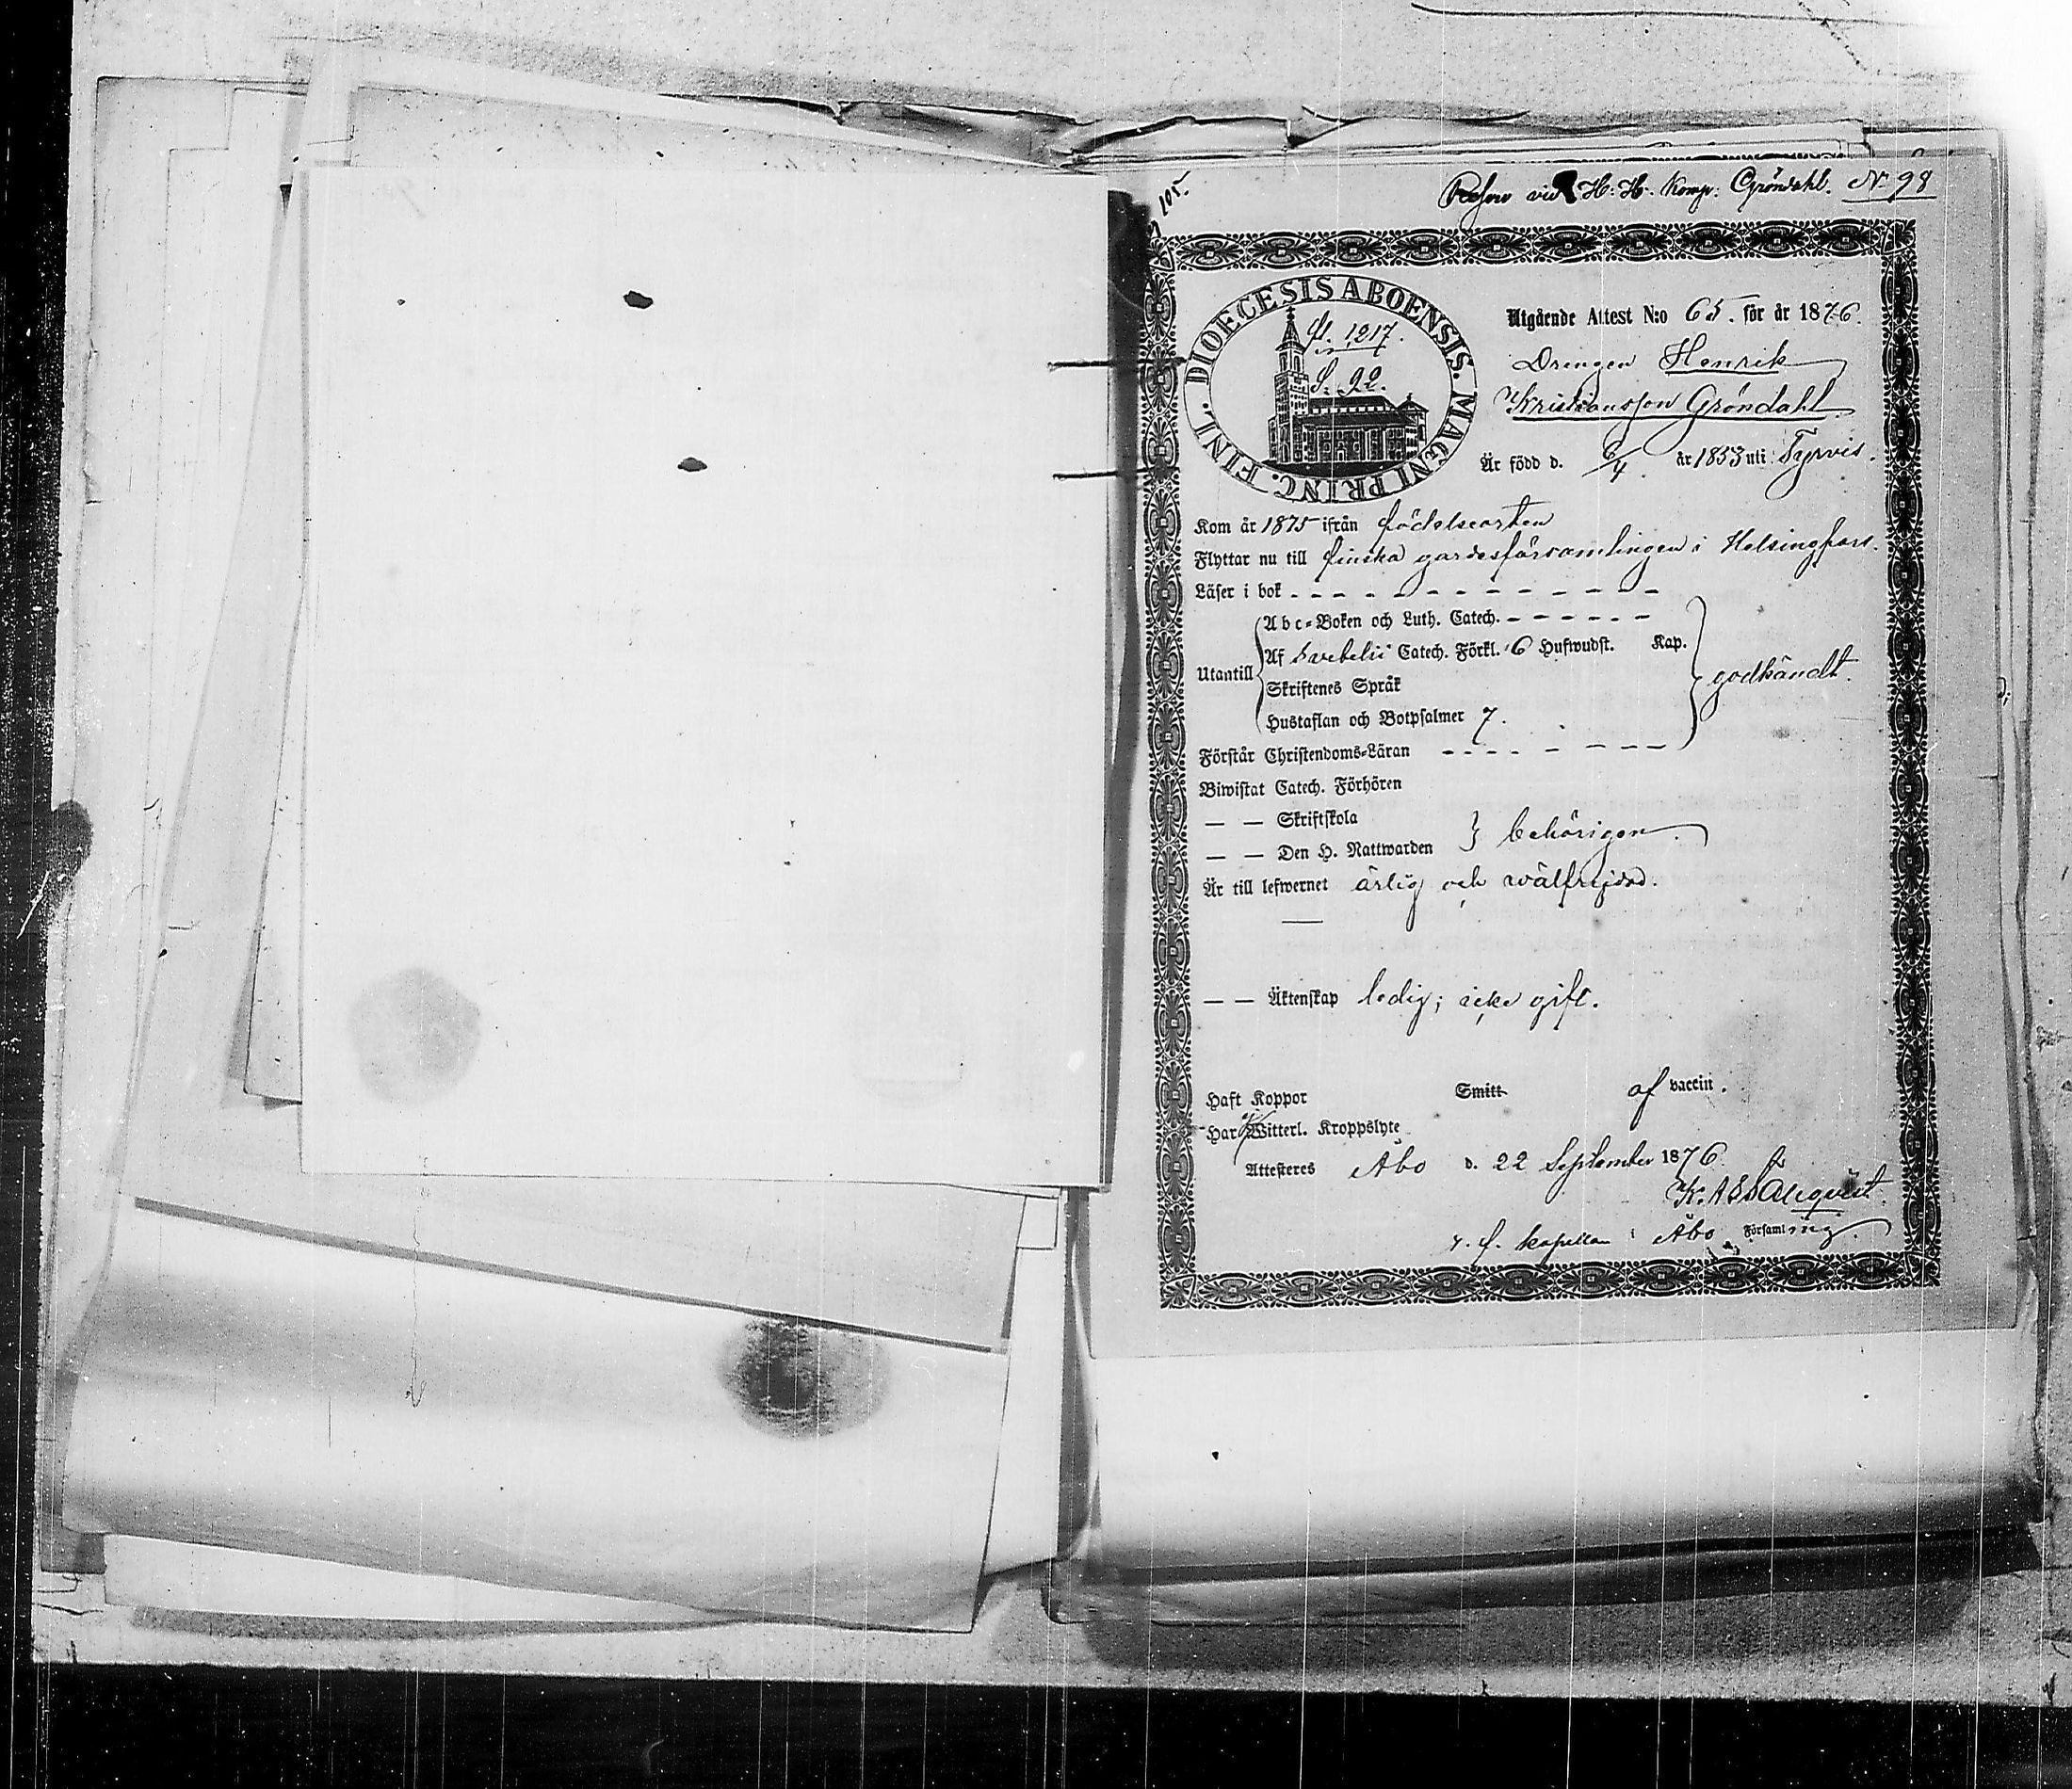 105.
vid H. H. Komp: Gröndahl. No 98
DIOECESIS ABOENSIS. MAGNI PRINC. FINL.
1217.
S. 92.
Utgående Attest N:o 65. för år 1876.
Drengen Henrik
Kristiansson Gröndahl
Är född d. 6/4 år 1853 uti Tyrvis.
Kom år 1875 ifrån födelseorten
Flyttar nu till finska gardesförsamlingen i Helsingfors.
Läser i bok - - - - - - - - - - - -
Abc-Boken och Luth. Catech. - - - - - -
Utantill Af Svebelii Catech. Förkl. 6 Hufwudst. Kap. godkändt.
Skriftenes Språk
Hustaflan och Botpsalmer 7.
Förstår Christendoms-Läran - - - - - - - -
Biwistat Catech. Förhören
— — Skriftskola
— — Den H. Nattwarden } behörigen.
Är till lefwernet ärlig och wälfrejdad.
—
— — Äktenskap ledig; icke gift.
Haft Koppor Smitt af vaccin.
Har Witterl. Kroppslyte
Attesteres Åbo d. 22 September 1876
v. f. kapellan i Åbo Församling.